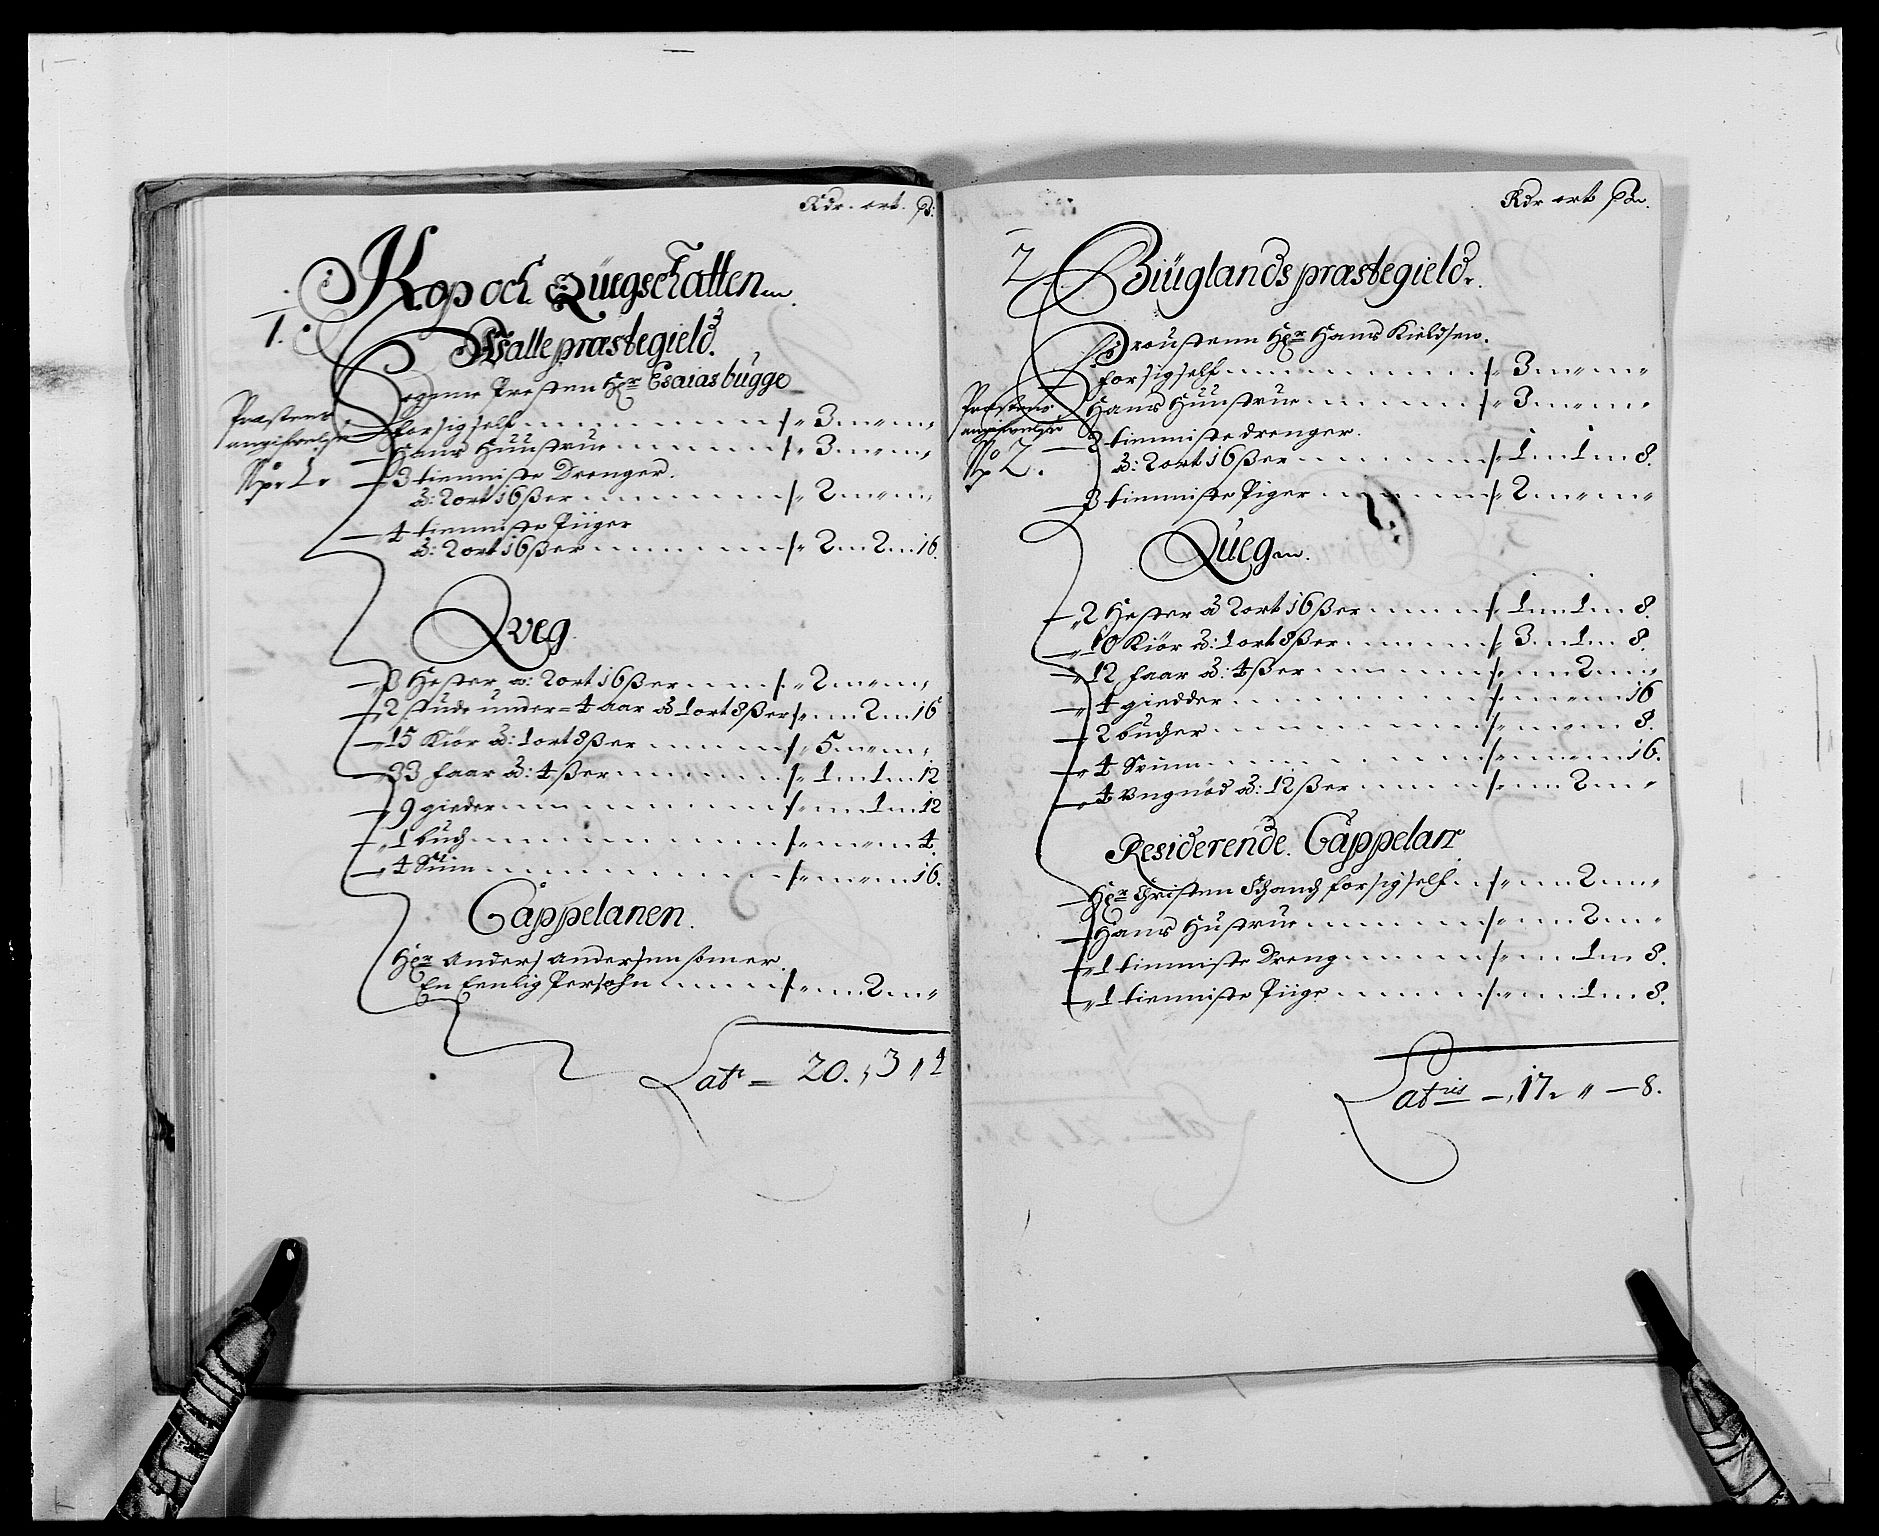 Rdr. ort. ß:
Kop och Qùegschatten
1.
Walle præstegield.
Sogene Presten Hr Esaias bùgge
Præstens
angifvelse
No 1.
forsigself - 3
Hans Hùùstrue - 3
3 tienniste Drenger.
à: 2 ort 16 ßer - 2
4 tienniste Piiger
à: 2 ort 16 ßer - 2 - 2 - 16.
Qveg.
3 Hester à: 2 ort 16 ßer - 2
2 stùde ùnder 4 aar à 1 ort 8 ßer - 2 - 16
15 Kiör à: 1 ort 8 ßer - 5
33 faar à: 4 ßer - 1 - 1 - 12
9 gieder - 1 - 12
1 bùch - 4.
4 Sùin - 16.
Cappelanen.
Hr Anders Andersen som er
En Eenlig Persohn - 2
Latr - 20. 3 4
Rdr ort ß
2. Biùglands præstegield.
Proùstenn Hr Hans Kieldsen.
forsigself - 3
Præstens
angifvelse
No 2.
Hans Hùùstrue - 3
2 tienniste drenger.
à: 2 ort 16 ßer - 1 - 1 - 8.
3 tienniste Piger - 2
Qùeg
2 Hester à 2 ort 16 ßer - 1 - 1 - 8.
10 Kiör à: 1 ort 8 ßer - 3 - 1 - 8.
12 faar à: 4 ßer - 2
4 giedder - 16
2 bùcher - 8.
4 Sviin - 16.
4 Ungnöd à: 12 ßer - 2
Residerende. Cappelan
Hr Christen Schanch forsigself - 2
Hans Hùstrue - 2
1 tienniste Dreng - 1 - 8.
1 tienniste Piige - 1 - 8.
Latris - 17 " - 8.